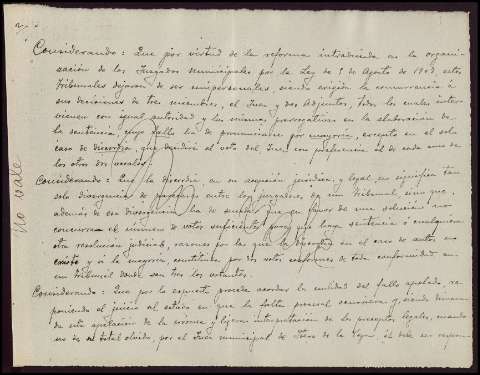 Considerando: Que por virtud de la reforma introducida en la organi-
zación de los Juzgados municipales por la Ley de 5 de Agosto de 1907, estos
Tribunales dejaron de ser unipersonales, siendo exigida la concurrencia á
sus decisiones de tres miembros, el Juez y dos Adjuntos, todos los cuales inter-
vienen con igual autoridad y las mismas prerrogativas en la elaboración de
la sentencia, cuyo fallo ha de pronunciarse por mayoría, excepto en el solo
caso de discordia, que decidirá el voto del Juez con preferencia al de cada uno de
los otros dos vocales.
Considerando: Que la discordia, en su acepción jurídica y legal, no significa tan
solo divergencia de pareceres entre los juzgadores, en un Tribunal, sino que
además de esa divergencia ha de suceder que en favor de una solución no
concurran el número de votos suficientes para que haya sentencia ó cualquiera
otra resolución judicial, razones por las que la discordia en el caso de autos no
existe y si la mayoría, constituida por dos votos conformes de toda conformidad en
un Tribunal donde son tres los votantes.
Considerando: Que por lo expuesto procede acordar la nulidad del fallo apelado, re-
poniendo el juicio al estado en que la falta procesal
de esta apelación de la errónea y ligera interpretación de los preceptos legales, cuando
no de su total olvido, por el Juez municipal de de la Vega él debe ser
No vale